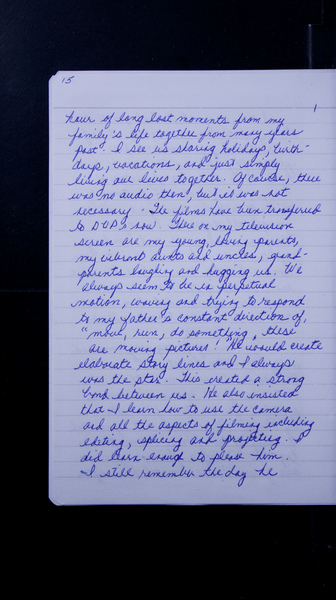 15
1
hour of long lost moments from my
family's life together from many years
past. I see us sharing holidays, birth-
days, vacations, and just simply
living our lives together. Of course, there
was no audio then, but it was not
necessary. The films have been transferred
to DVDs now. There on my television
screen are my young, loving parents,
my vibrant aunts and uncles, grand-
parents laughing and hugging us. We
always seem to be in perpetual
motion, waving and trying to respond
to my father's constant direction of,
"move, run, do something, these
are moving pictures! He would create
elaborate story lines and I always
was the star. This created a strong
bond between us. He also insisted
that I learn how to use the camera
and all the aspects of filming including
editing, splicing and projecting. I
did learn enough to please him.
I still remember the day he